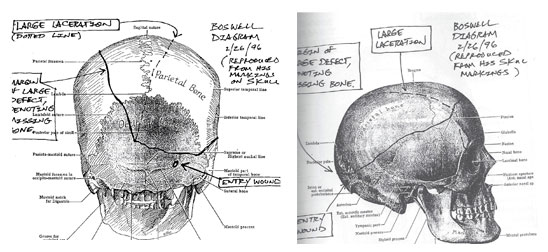 LARGE LACERATION
(DOTTED LINE)
Sagittal suture
BOSWELL
DIAGRAM
2/26/96
(REPRODUCED
FROM HIS
MARKINGS
ON SKULL
Parietal foramen
Parietal Bone
MARGIN
OF LARGE
DEFECT,
DENOTING
MISSING
BONE.
Lambda
Lambdoid suture
Superior temporal line
Inferior temporal line
Parieto-mastoid suture
Supreme or
Highest nuchal line
Mastoid foramen in
occipito-mastoid suture
Mastoid part
of temporal bone
Mastoid notch
for Digastric
ENTRY WOUND
Mastoid process
LARGE
LACERATION
BOSWELL
DIAGRAM
2/26/96
(REPRODUCED
FROM HIS
SKULL
MARKINGS)
GIN OF
GE DEFECT,
NOTING
SSING BONE.
Parietal bone
Glabella
Nasion
Nasal bone
Lacrimal bone
Anterior nasal sp
Mastoid process
Styloid process
ENTRY
WOUND